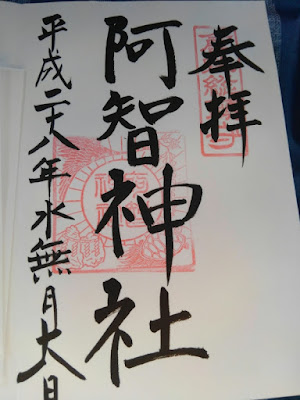 奉拝
阿智神社
平成二十八年水無月大日